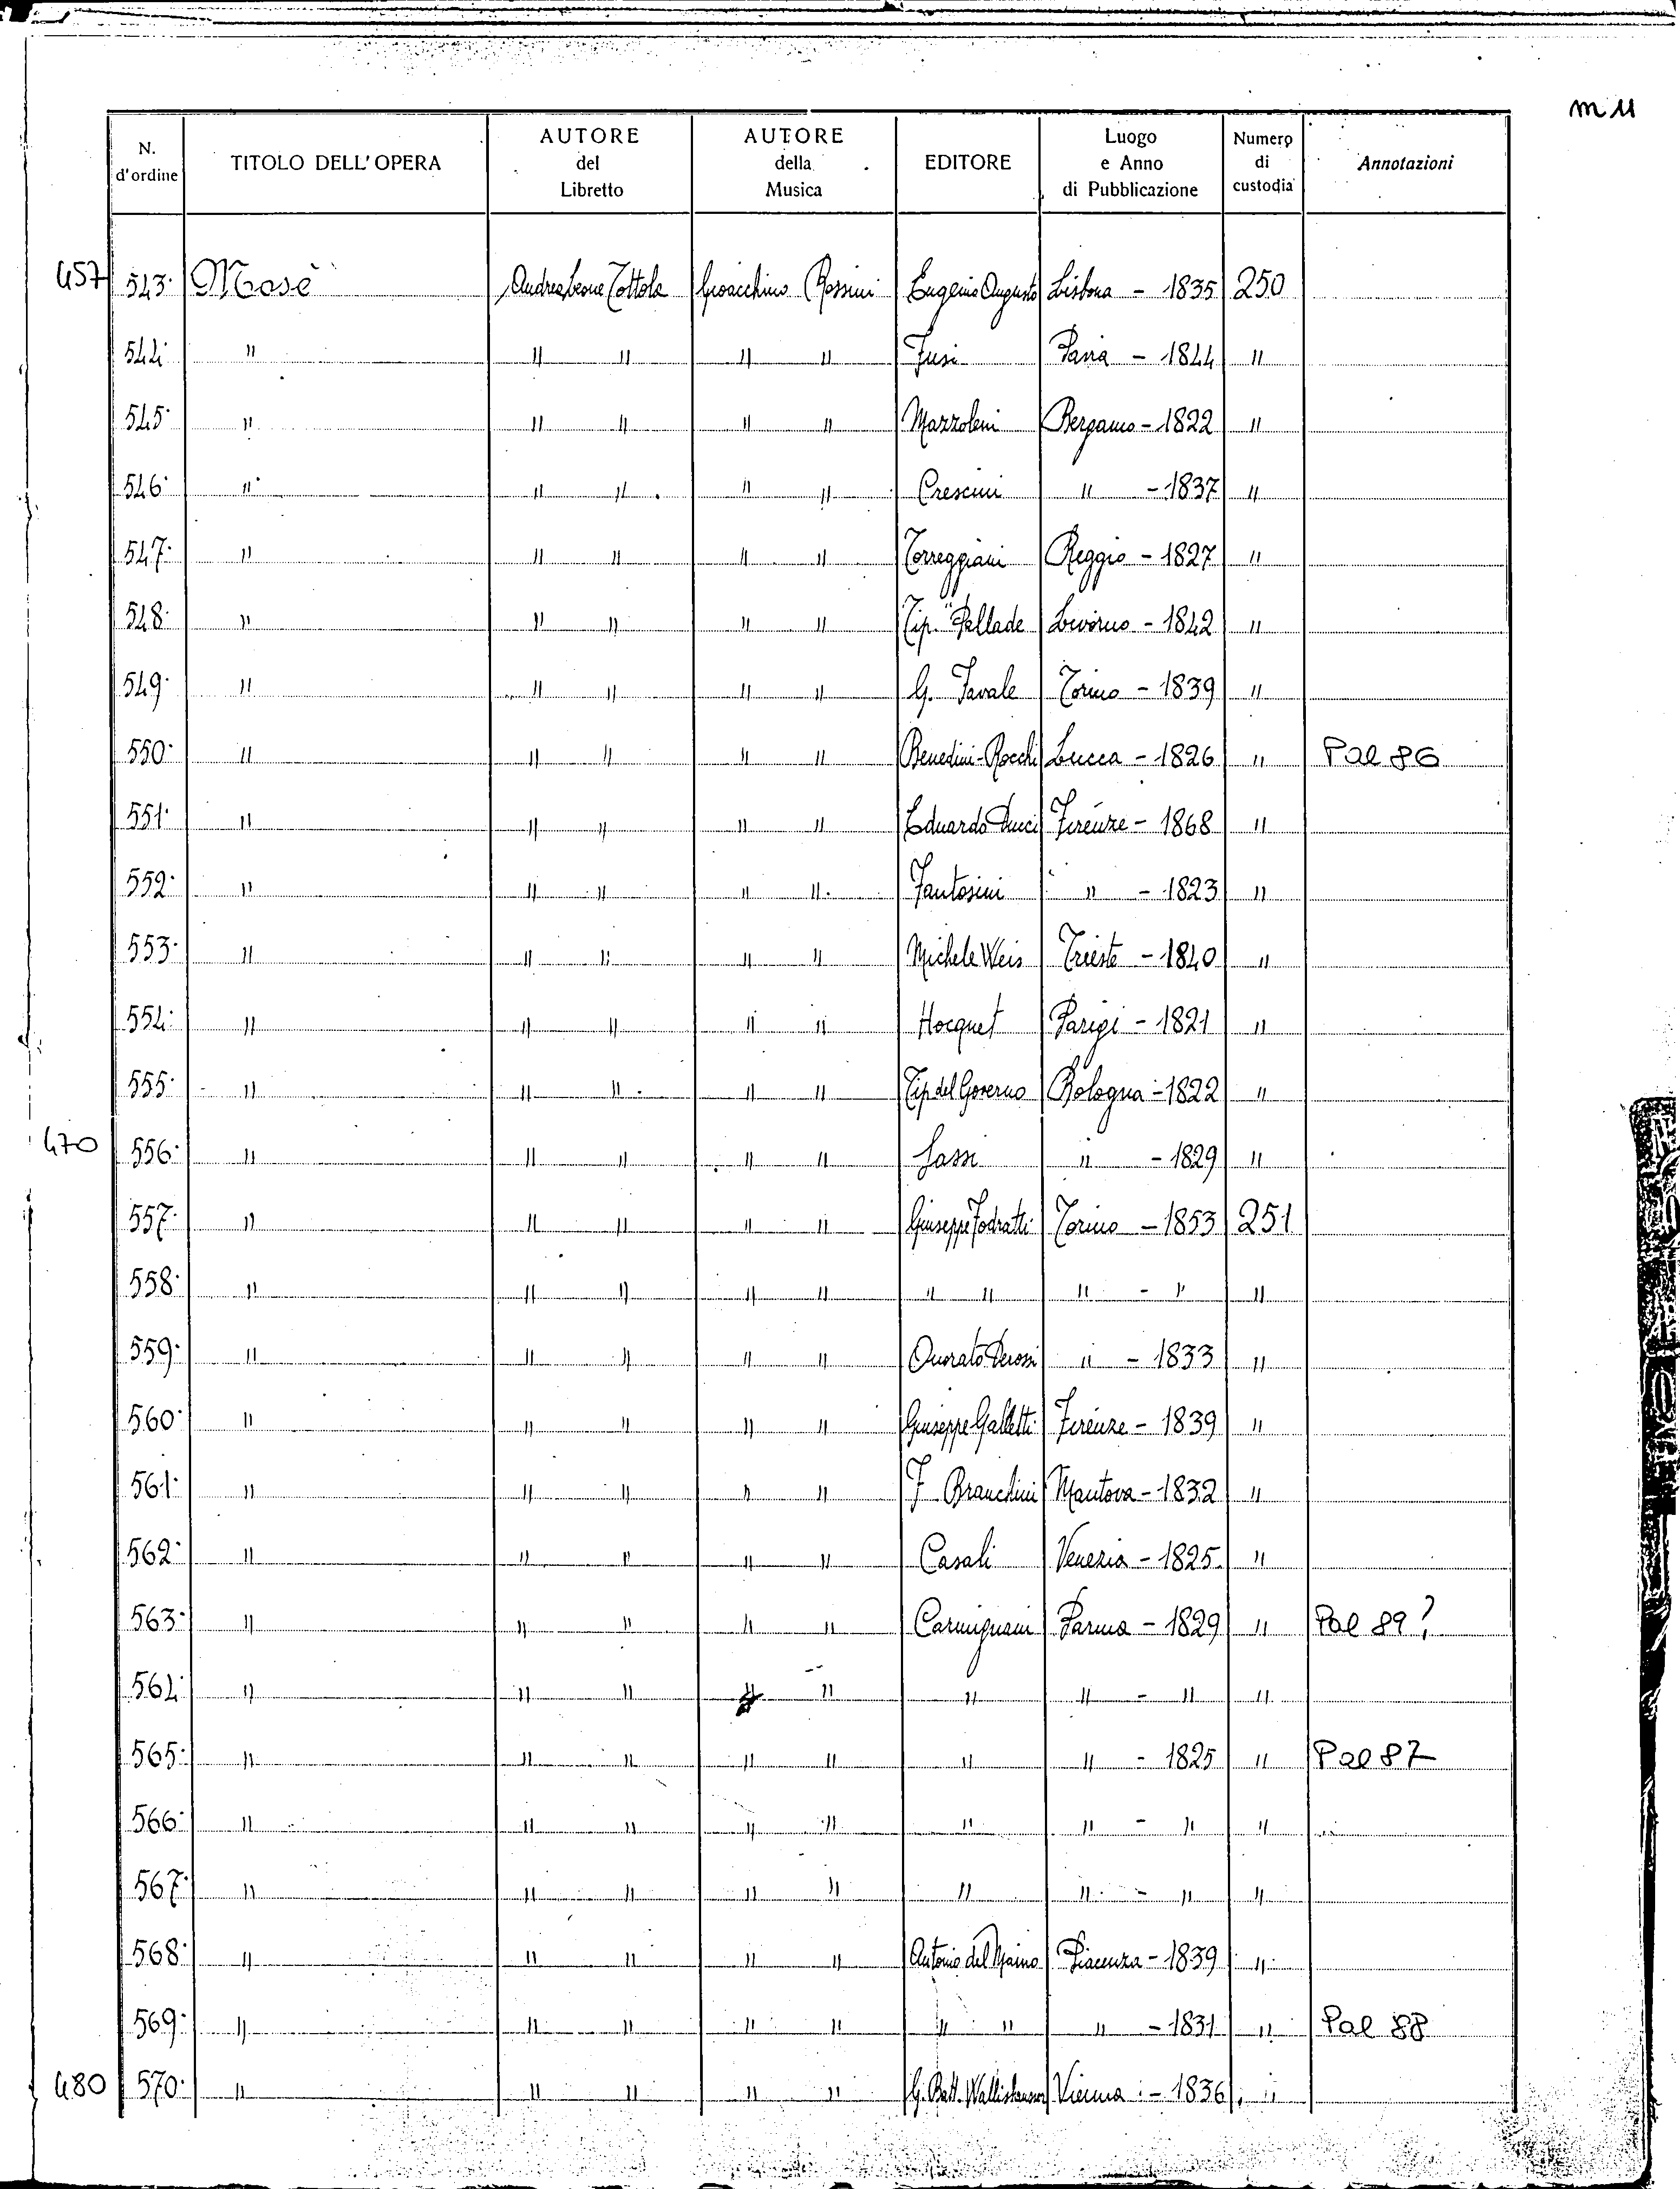 m 11
N. d'ordine TITOLO DELL'OPERA AUTORE del Libretto AUTORE della Musica EDITORE Luogo e Anno di Pubblicazione Numero di custodia Annotazioni
457 543. Mosè Andrea Leone Tottola Gioacchino Rossini Eugenio Augusto Lisbona - 1835 250
544. " " " " " Fusi Pavia - 1844 "
545. " " " " " Mazzoleni Bergamo - 1822 "
546. " " " " " Crescini " - 1837 "
547. " " " " " Torreggiani Reggio - 1827 "
548. " " " " " Tip. "Pallade Livorno - 1842 "
549. " " " " " G. Favale Torino - 1839 "
550. " " " " " Benedini-Rocchi Lucca - 1826 " Pal 86
551. " " " " " Eduardo Ducci Firenze - 1868 "
552. " " " " " Fantosini " - 1823 "
553. " " " " " Michele Weis Trieste - 1840 "
554. " " " " " Hocquet Parigi - 1821 "
555. " " " " " Tip del Governo Bologna - 1822 "
470 556. " " " " " Sassi " - 1829 "
557. " " " " " Giuseppe Fodratti Torino - 1853 251
558. " " " " " " " " - " "
559. " " " " " Onorato Derossi " - 1833 "
560. " " " " " Giuseppe Galletti Firenze - 1839 "
561. " " " " " F Branchini Mantova - 1832 "
562. " " " " " Casali Venezia - 1825 "
563. " " " " " Carmignani Parma - 1829 " Pal 89?
564. " " " " " " " - " "
565. " " " " " " " - 1825 " Pal 87
566. " " " " " " " - " "
567. " " " " " " " - " "
568. " " " " " Antonio del Maino Piacenza - 1839 "
569. " " " " " " " " - 1831 " Pal 88
480 570. " " " " " G. Batt. Wallishausser Vienna - 1836 "